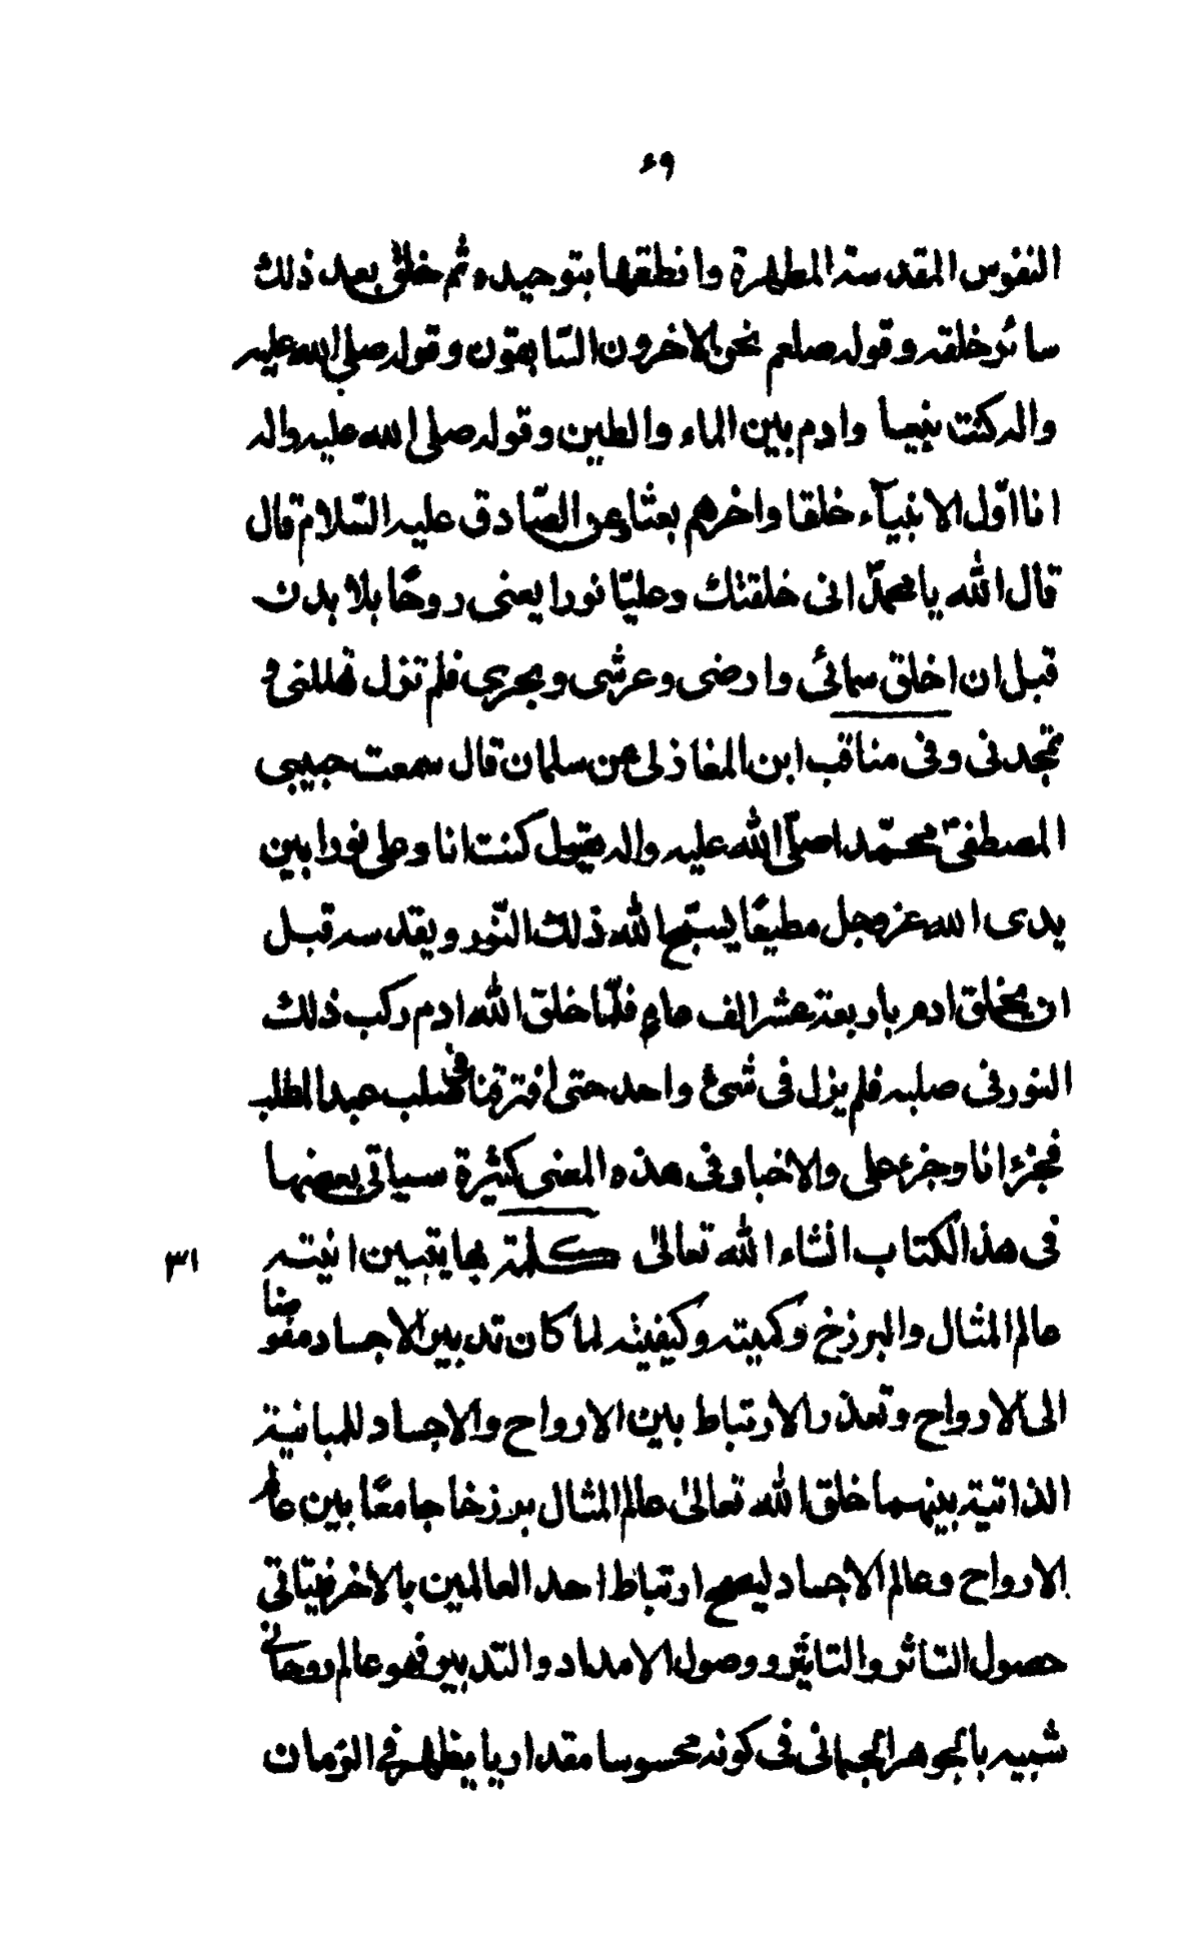 ٦٩
النفوس المقدسة المطهرة وانطقها بتوحيده ثم خلق بعد ذلك
سائر خلقه وقوله صلعم نحن الاخرون السّابقون وقوله صلى الله عليه
واله كنت نبيا وادم بين الماء والطين وقوله صلى الله عليه واله
انا اوّل الانبيآء خلقا واخرهم بعثا وعن الصّادق عليه السّلام قال
قال الله يا محمّد انى خلقتك وعليّا نورا يعنى روحًا بلا بدن
قبل ان اخلق سمائى وارضى وعرشى وبحرى فلم تزل تهللنى و
تمجدنى وفى مناقب ابن المغاذلى عن سلمان قال سمعت حبيبى
المصطفى محمّدا صلّى الله عليه واله يقول كنت انا وعلى نورا بين
يدى الله عز وجل مطيعًا يسبّح الله ذلك النّور ويقدسه قبل
ان يخلق ادم باربعة عشر الف عام فلمّا خلق الله ادم ركب ذلك
النور فى صلبه فلم يزل فى شئ واحد حتى افترقنا فى صلب عبد المطلب
فجزء انا وجزء على والاخبار فى هذه المعنى كثيرة سياتى بعضها
فى هذ الكتاب انشاء الله تعالىٰ كلمة بها يتبين انيته
٣١
عالم المثال والبرزخ وكميته وكيفيته لما كان تدبير الاجساد مفوضا
الى الارواح وتعذر الارتباط بين الارواح والاجساد للمباينة
الذاتية بينهما خلق الله تعالىٰ عالم المثال برزخا جامعًا بين عالم
الارواح وعالم الاجساد ليصح ارتباط احد العالمين بالاخر فيتاتى
حصول التاثر والتاثير ووصول الامداد والتدبير فهو عالم روحانى
شبيه بالجوهر الجسمانى فى كونه محسوسا مقداريا يظهر فى الزمان